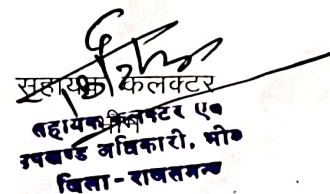 सहायक कलक्टर
भीम
सहायक कलक्टर एवं
उपखण्ड अधिकारी, भीम
जिला - राजसमन्द